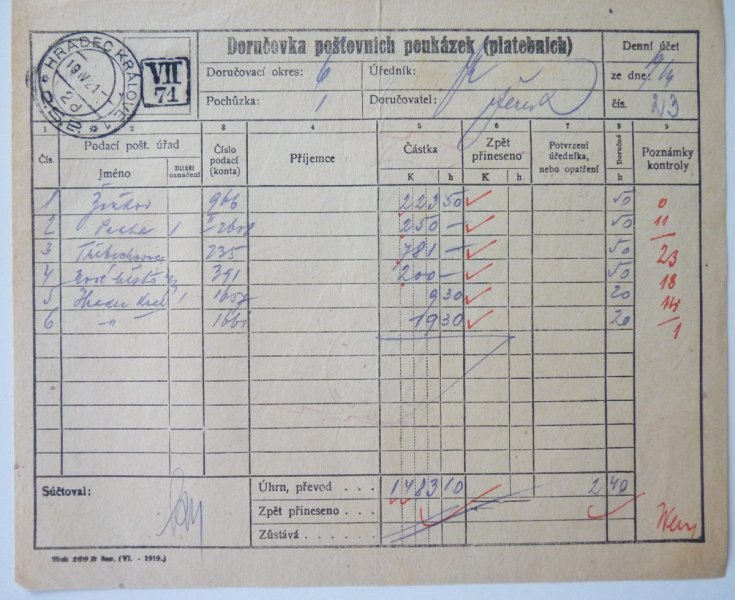 HRADEC KRÁLOVÉ 1
19 IV 21
* 2d *
VII
74
Doručovka poštovních poukázek (platebních)
Doručovací okres: 6 Úředník:
Pochůzka: 1 Doručovatel:
Denní účet
ze dne: 19/4
čís. 23
1 2 3 4 5 6 7 8 9
Čís. Podací pošt. úřad Číslo podací (konta) Příjemce Částka Zpět přineseno Potvrzení úředníka, nebo opatření Doručné Poznámky kontroly
Jméno Bližší označení K h K h h
1 Žižkov 966 223 50 50 0
2 Praha 1 250 — 50 11
3 Třebechovice 235 781 — 50 23
4 Nové Město 391 200 — 50 18
5 Hradec Král 1 9 30 20 14
6 —〃— 19 30 20 1
Súčtoval: Úhrn, převod . . . 1483 10 2 40
Zpět přineseno . . .
Zůstává . . . . . .
Tisk 269 B čes. (VI. - 1919.)